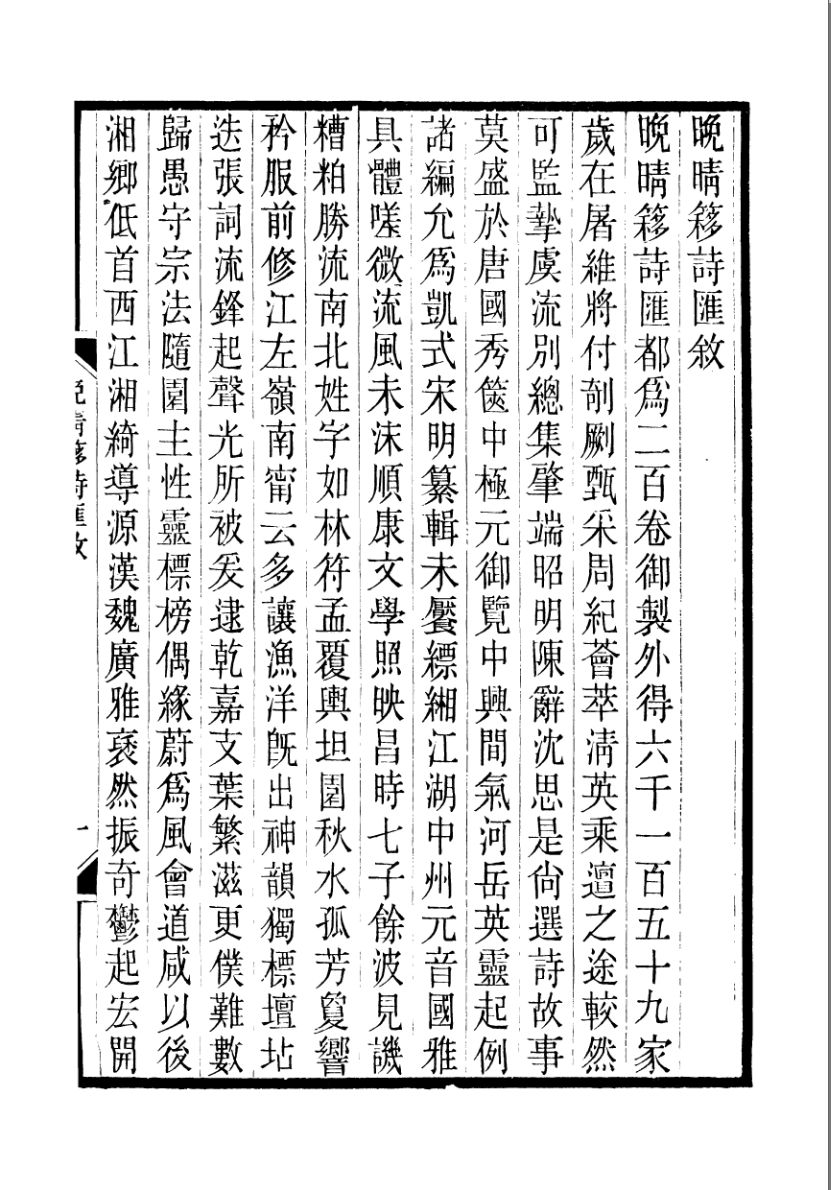 晚晴簃詩匯敘
晚晴簃詩匯都爲二百卷御製外得六千一百五十九家
歲在屠維將付剞劂甄采周紀薈萃淸英乘邅之途較然
可監摯虞流別總集肇端昭明陳辭沈思是尙選詩故事
莫盛於唐國秀篋中極元御覽中興間氣河岳英靈起例
諸編允爲凱式宋明纂輯未饜縹緗江湖中州元音國雅
具體嗟微流風未沫順康文學照映昌時七子餘波見譏
糟粕勝流南北姓字如林符孟覆輿坦園秋水孤芳敻響
矜服前修江左嶺南甯云多讓漁洋旣出神韻獨標壇坫
迭張詞流鋒起聲光所被爰逮乾嘉支葉繁滋更僕難數
歸愚守宗法隨園主性靈標榜偶緣蔚爲風會道咸以後
湘鄉低首西江湘綺導源漢魏廣雅裦然振奇鬱起宏開
晚晴簃詩匯敘
一